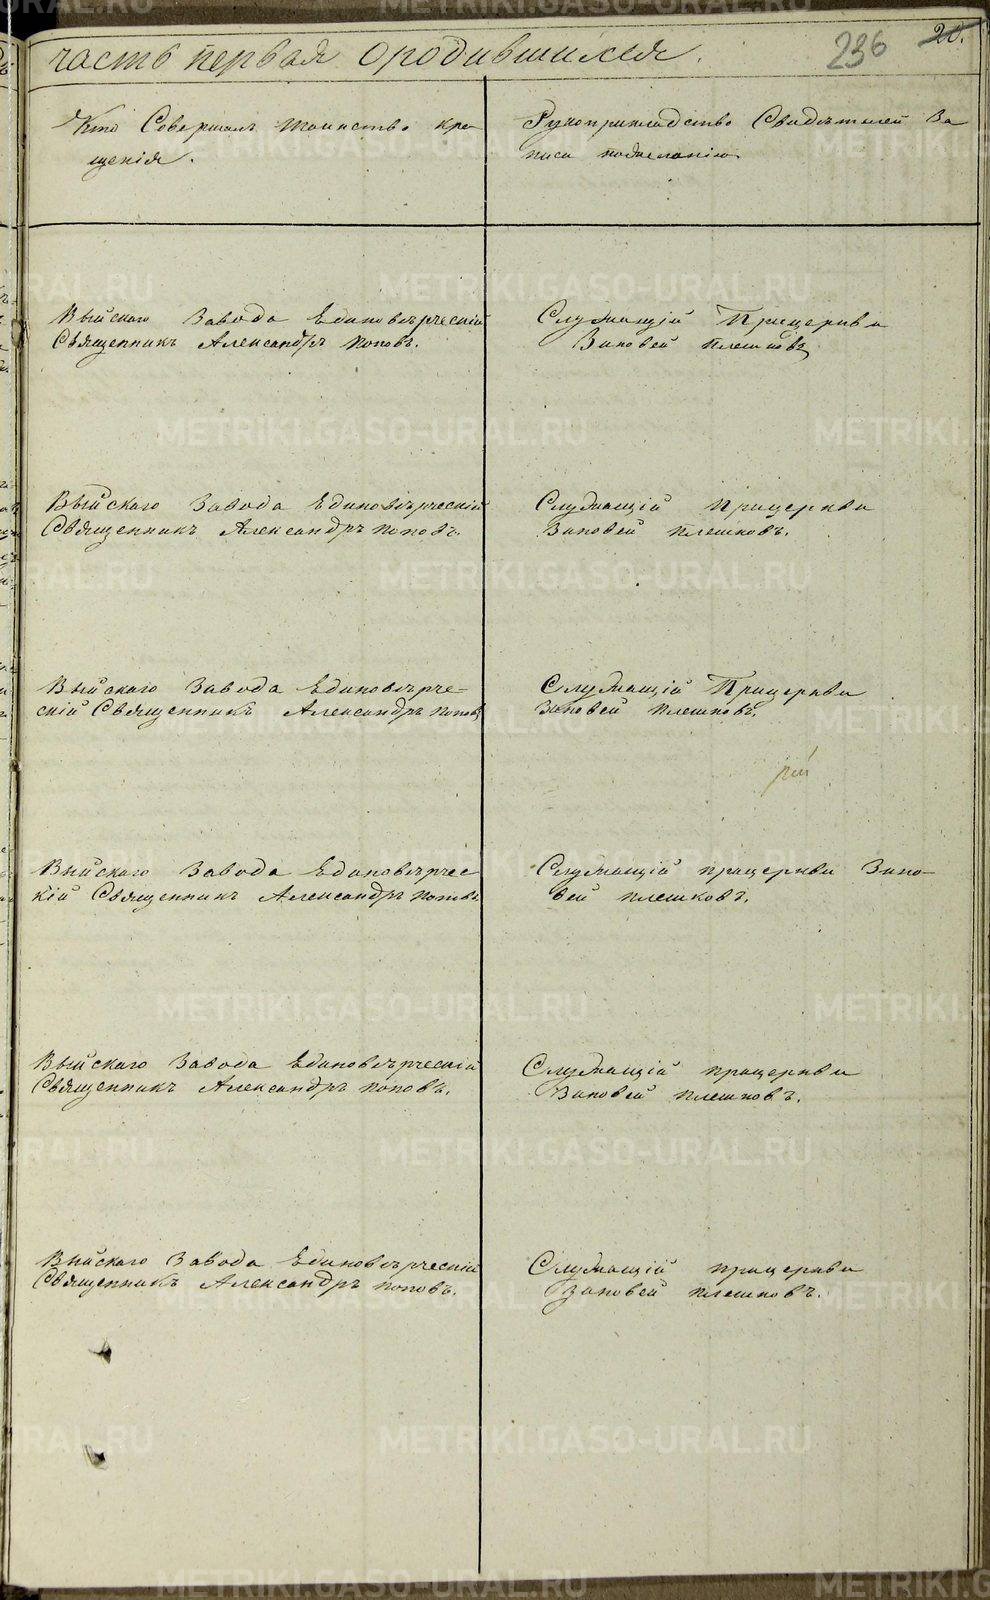 часть первая о родившихся.
236
20.
Кто Совершалъ таинство кре-
щенія.
Рукоприкладство Свидѣтелей За
писи по желанію
Выйскаго Завода Единовѣрческій
Священникъ Александръ Поповъ.
Служащій При церкви
Зиновей Плешковъ
Выйскаго Завода Единовѣрческій
Священникъ Александръ Поповъ.
Служащій при церкви
Зиновей Плешковъ.
Выйскаго Завода Единовѣрче-
скій Священникъ Александръ Поповъ
Служащій При церкви
Зиновей Плешковъ.
Выйскаго Завода Единовѣрчес
кій Священникъ Александръ Поповъ
Служащій при церкви Зино-
вей Плешковъ.
Выйскаго Завода Единовѣрческій
Священникъ Александръ Поповъ.
Служащій при церкви
Зиновей Плешковъ.
Выйскаго Завода Единовѣрческій
Священникъ Александръ Поповъ.
Служащій при церкви
Зиновей Плешковъ.
METRIKI.GASO-URAL.RU